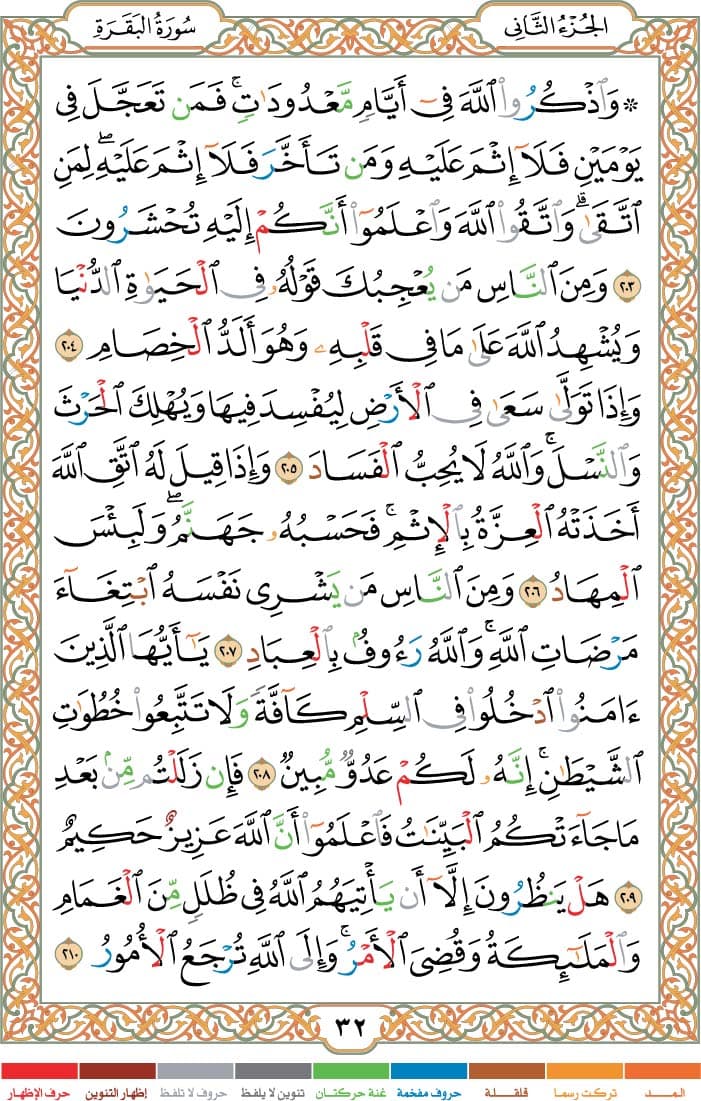 الجُزْءُ الثَّانِي
سُورَةُ البَقَرَةِ
۞ وَٱذْكُرُوا۟ ٱللَّهَ فِىٓ أَيَّامٍ مَّعْدُودَٰتٍ ۚ فَمَن تَعَجَّلَ فِى
يَوْمَيْنِ فَلَآ إِثْمَ عَلَيْهِ وَمَن تَأَخَّرَ فَلَآ إِثْمَ عَلَيْهِ ۖ لِمَنِ
ٱتَّقَىٰ ۗ وَٱتَّقُوا۟ ٱللَّهَ وَٱعْلَمُوٓا۟ أَنَّكُمْ إِلَيْهِ تُحْشَرُونَ
٢٠٣ وَمِنَ ٱلنَّاسِ مَن يُعْجِبُكَ قَوْلُهُۥ فِى ٱلْحَيَوٰةِ ٱلدُّنْيَا
وَيُشْهِدُ ٱللَّهَ عَلَىٰ مَا فِى قَلْبِهِۦ وَهُوَ أَلَدُّ ٱلْخِصَامِ ٢٠٤
وَإِذَا تَوَلَّىٰ سَعَىٰ فِى ٱلْأَرْضِ لِيُفْسِدَ فِيهَا وَيُهْلِكَ ٱلْحَرْثَ
وَٱلنَّسْلَ ۗ وَٱللَّهُ لَا يُحِبُّ ٱلْفَسَادَ ٢٠٥ وَإِذَا قِيلَ لَهُ ٱتَّقِ ٱللَّهَ
أَخَذَتْهُ ٱلْعِزَّةُ بِٱلْإِثْمِ ۚ فَحَسْبُهُۥ جَهَنَّمُ ۖ وَلَبِئْسَ
ٱلْمِهَادُ ٢٠٦ وَمِنَ ٱلنَّاسِ مَن يَشْرِى نَفْسَهُ ٱبْتِغَآءَ
مَرْضَاتِ ٱللَّهِ ۗ وَٱللَّهُ رَءُوفٌۢ بِٱلْعِبَادِ ٢٠٧ يَٰٓأَيُّهَا ٱلَّذِينَ
ءَامَنُوا۟ ٱدْخُلُوا۟ فِى ٱلسِّلْمِ كَآفَّةً وَلَا تَتَّبِعُوا۟ خُطُوَٰتِ
ٱلشَّيْطَٰنِ ۚ إِنَّهُۥ لَكُمْ عَدُوٌّ مُّبِينٌ ٢٠٨ فَإِن زَلَلْتُم مِّنۢ بَعْدِ
مَا جَآءَتْكُمُ ٱلْبَيِّنَٰتُ فَٱعْلَمُوٓا۟ أَنَّ ٱللَّهَ عَزِيزٌ حَكِيمٌ
٢٠٩ هَلْ يَنظُرُونَ إِلَّآ أَن يَأْتِيَهُمُ ٱللَّهُ فِى ظُلَلٍ مِّنَ ٱلْغَمَامِ
وَٱلْمَلَٰٓئِكَةُ وَقُضِىَ ٱلْأَمْرُ ۚ وَإِلَى ٱللَّهِ تُرْجَعُ ٱلْأُمُورُ ٢١٠
٣٢
المــد
تركت رسما
قلقـلة
حروف مفخمة
غنة حركتان
تنوين لا يلفظ
حروف لا تلفظ
إظهار التنوين
حرف الإظهار